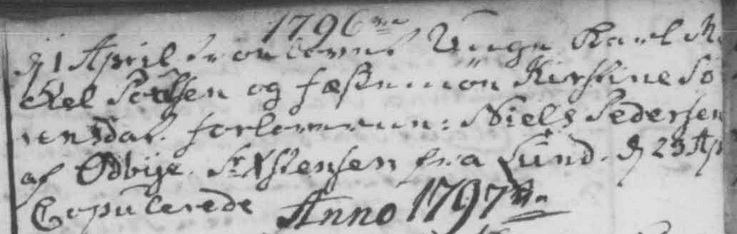 1796
d 1 April Troloved Unge Karl Mi
chel Poulsen og fæstemøn Kirstine Sø
rensdat. forloverne: Niels Pedersen
af Odbye. Sr. Xstensen fra Lund. d 23 Ap
Copulerede Anno 1797